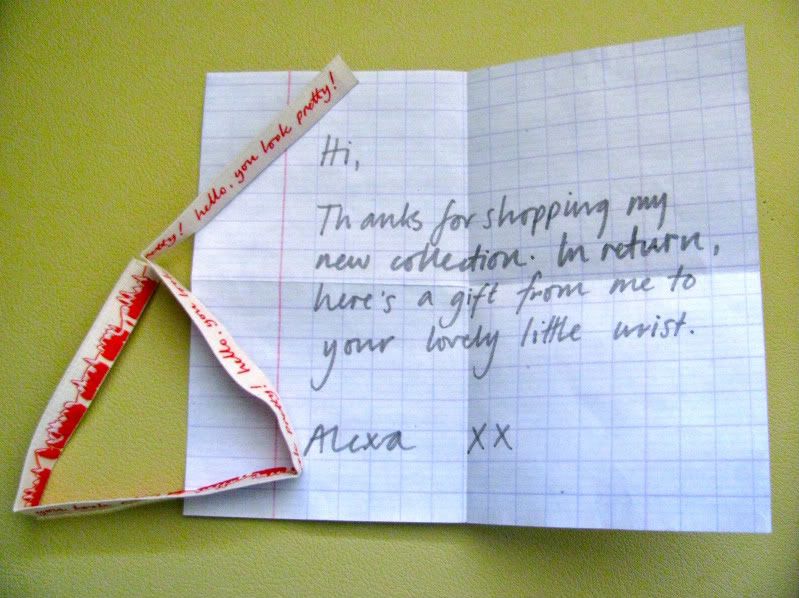 Hi,
Thanks for shopping my
new collection. In return,
here's a gift from me to
your lovely little wrist.
Alexa XX
pretty! hello, you look pretty!
hello, you
pretty! hello, you look
you look